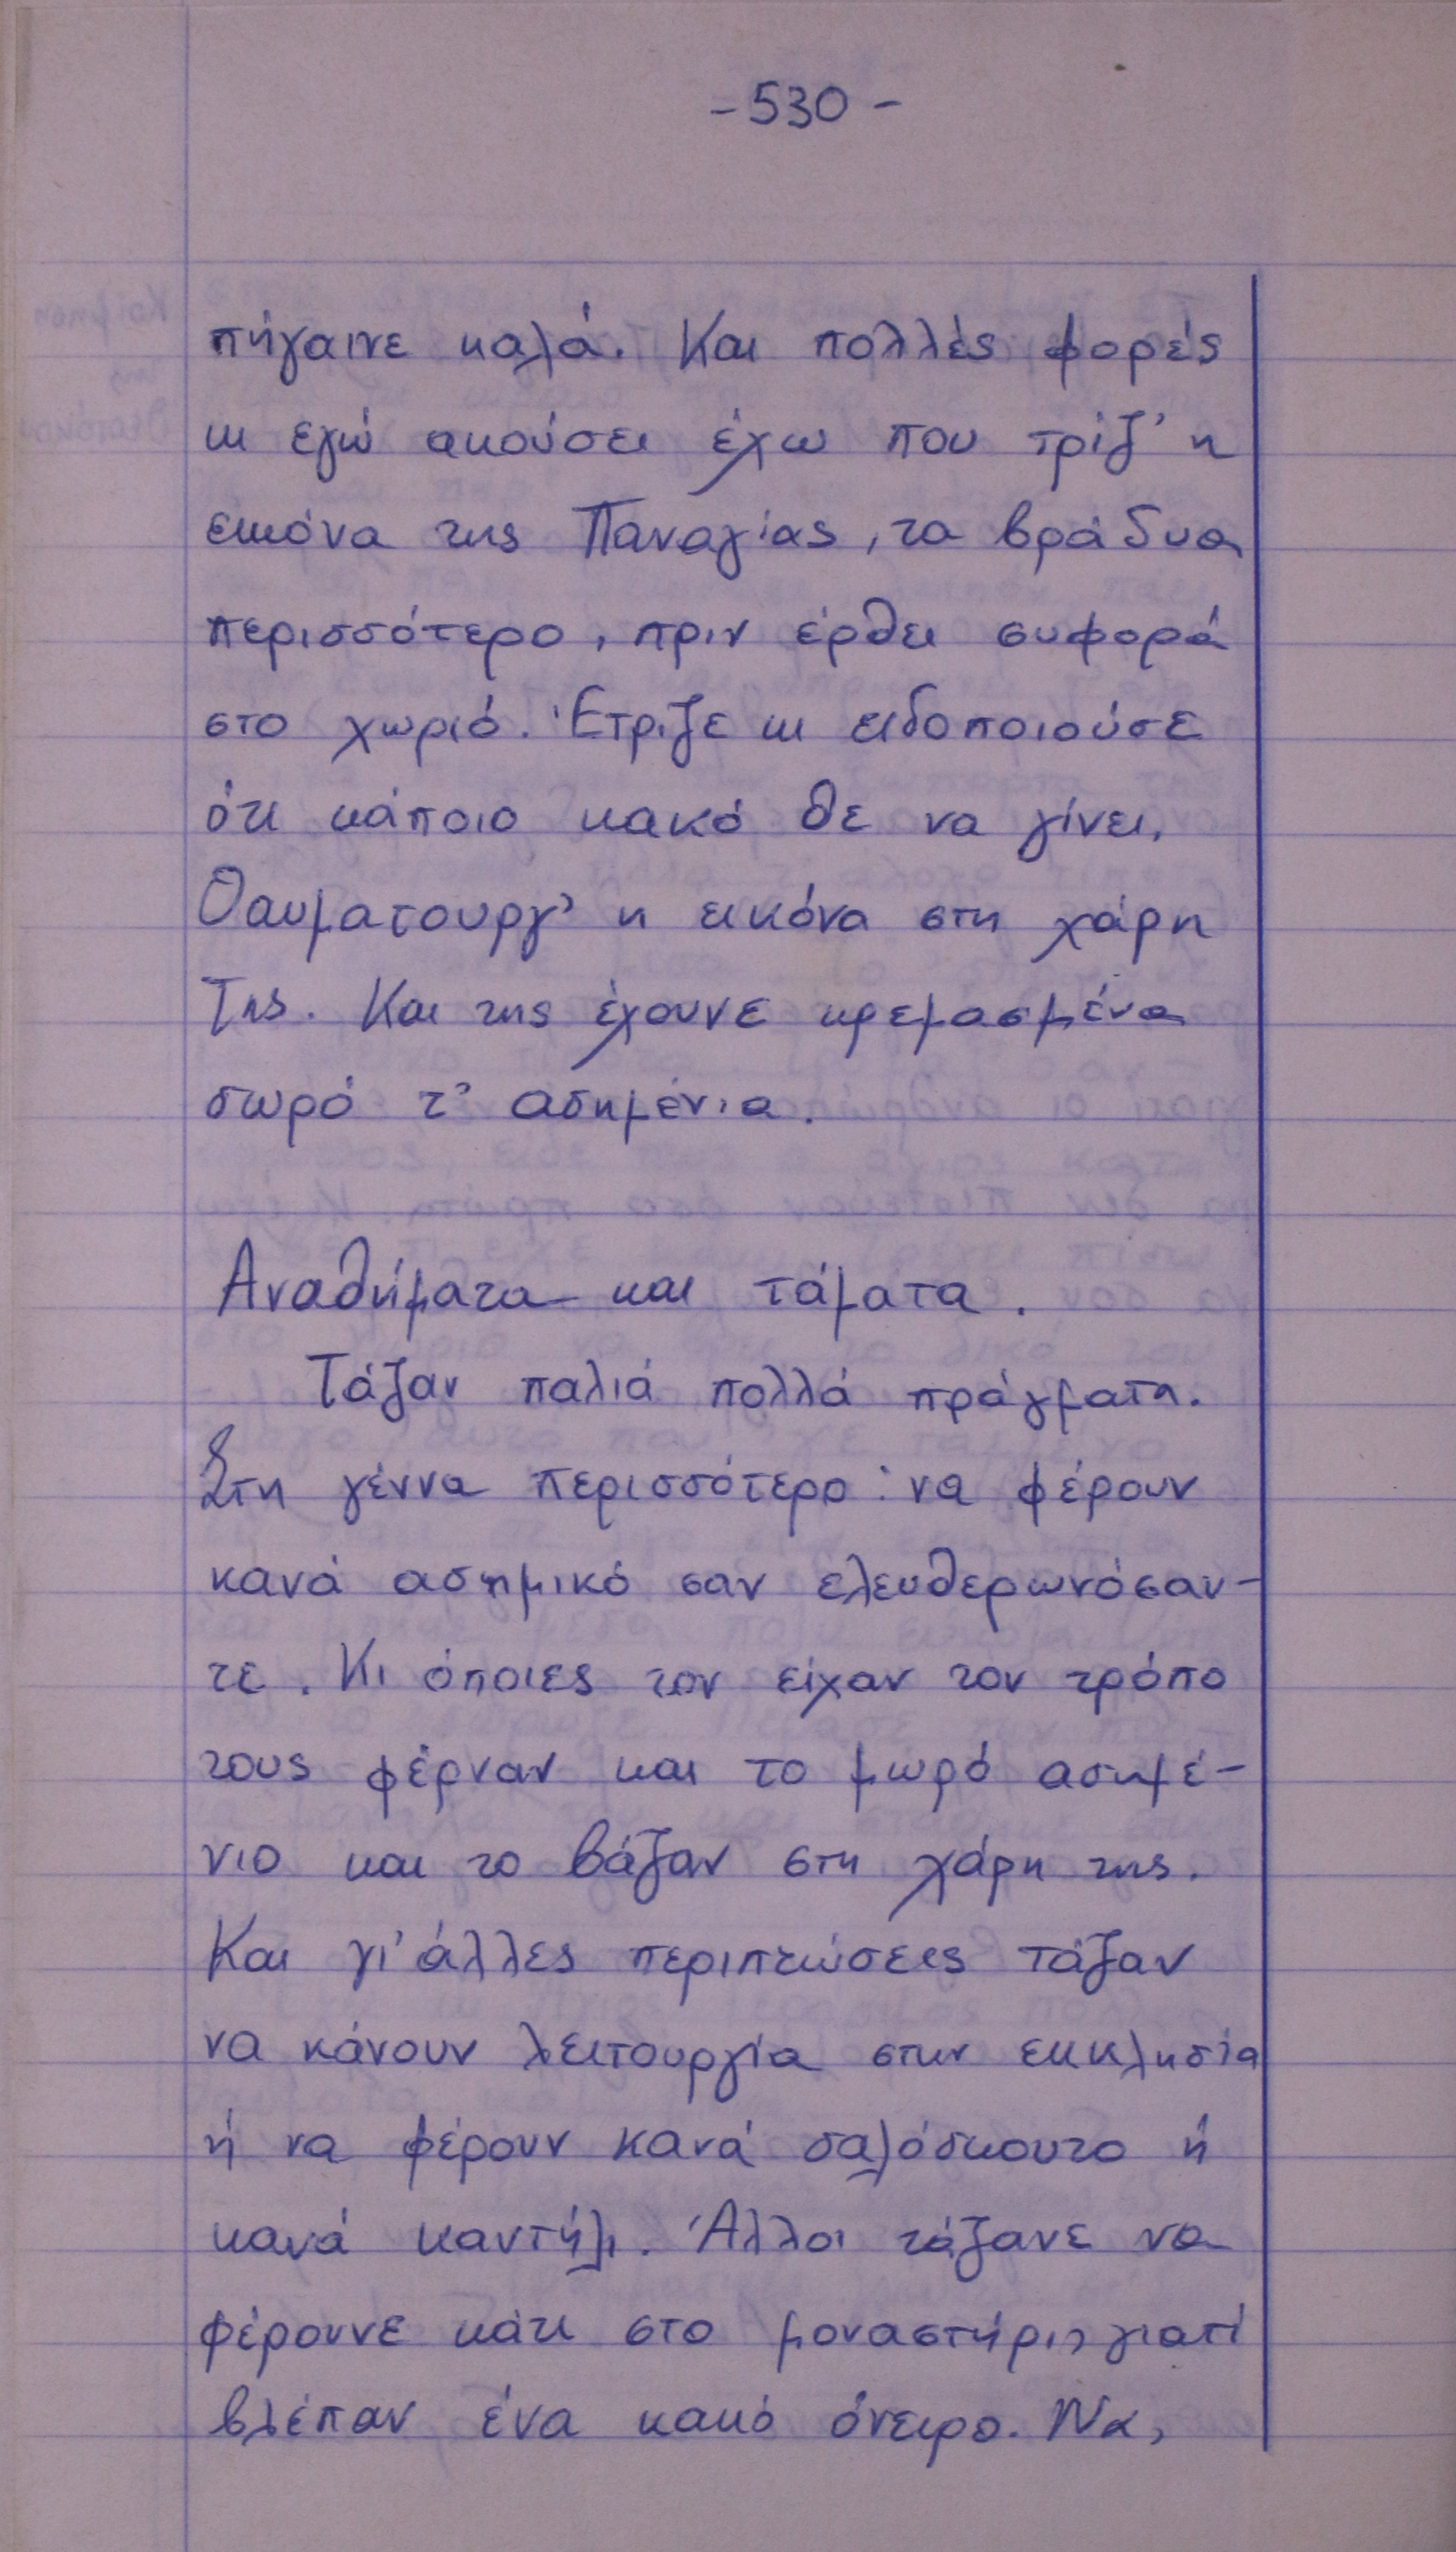 - 530 -
πήγαινε καλά. Και πολλές φορές
κι εγώ ακούσει έχω που τρίζ' η
εικόνα της Παναγίας, τα βράδυα
περισσότερο, πριν έρθει συφορά
στο χωριό. Έτριζε κι ειδοποιούσε
ότι κάποιο κακό θε να γίνει.
Θαυματουργ' η εικόνα στη χάρη
Της. Και της έχουνε κρεμασμένα
σωρό τ' ασημένια.
Αναθήματα και τάματα.
Τάζαν παλιά πολλά πράγματα.
Στη γέννα περισσότερο: να φέρουν
κανά ασημικό σαν ελευθερωνόσαν-
τε. Κι όποιες τον είχαν τον τρόπο
τους φέρναν και το μωρό ασημέ-
νιο και το βάζαν στη χάρη της.
Και γι' άλλες περιπτώσεις τάζαν
να κάνουν λειτουργία στην εκκλησία
ή να φέρουν κανά σαλόσκουτο ή
κανά καντήλι. Άλλοι τάζανε να
φέρουνε κάτι στο μοναστήρι, γιατί
βλέπαν ένα κακό όνειρο. Να,